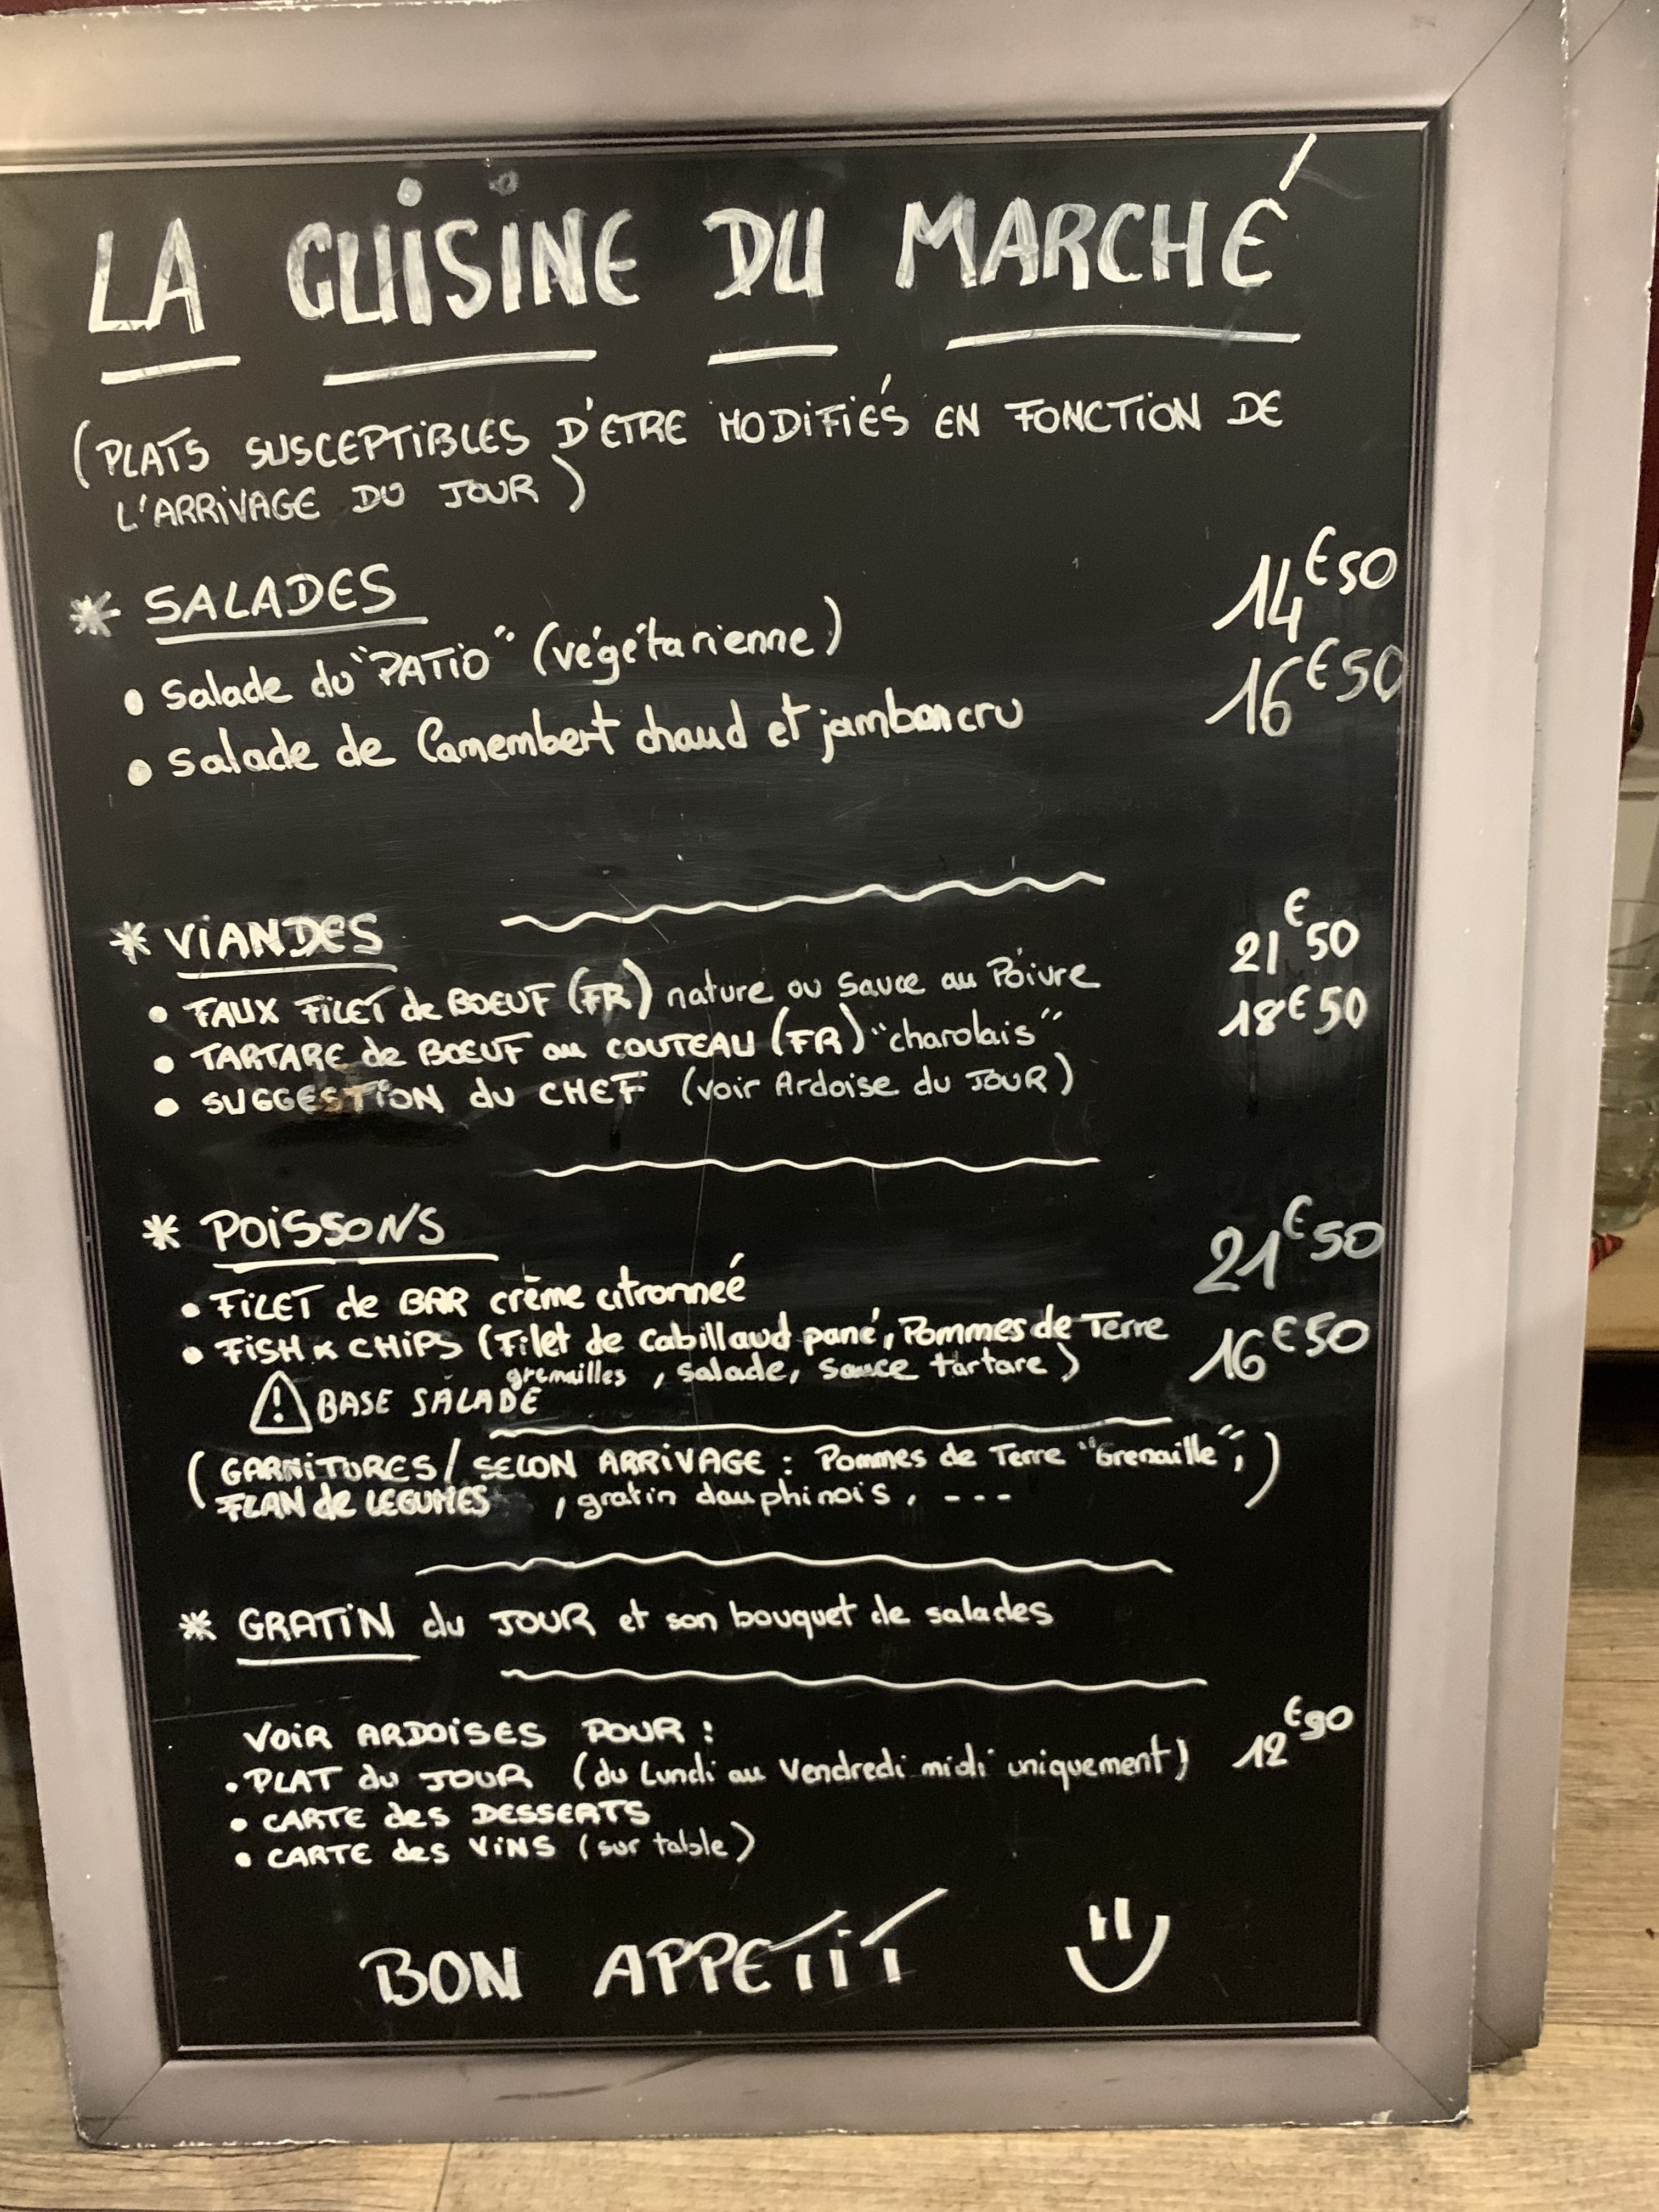 LA CUISINE DU MARCHÉ
(PLATS SUSCEPTIBLES D'ETRE MODIFIÉS EN FONCTION DE
L'ARRIVAGE DU JOUR)
* SALADES
• Salade du "PATIO" (végétarienne) 14€50
• Salade de Camembert chaud et jambon cru 16€50
* VIANDES
• FAUX FILET de BOEUF (FR) nature ou Sauce au Poivre 21€50
• TARTARE de BOEUF au COUTEAU (FR) "charolais" 18€50
• SUGGESTION du CHEF (voir Ardoise du JOUR)
* POISSONS
• FILET de BAR crème citronneé 21€50
• FISH & CHIPS (Filet de Cabillaud pané, Pommes de Terre 16€50
grenailles, salade, sauce tartare)
⚠ BASE SALADE
(GARNITURES/ SELON ARRIVAGE : Pommes de Terre "Grenaille",
FLAN de LEGUMES, gratin dauphinois, ---)
* GRATIN du JOUR et son bouquet de salades
VOIR ARDOISES POUR :
• PLAT du JOUR (du Lundi au Vendredi midi uniquement) 12€90
• CARTE des DESSERTS
• CARTE des VINS (sur table)
BON APPETIT